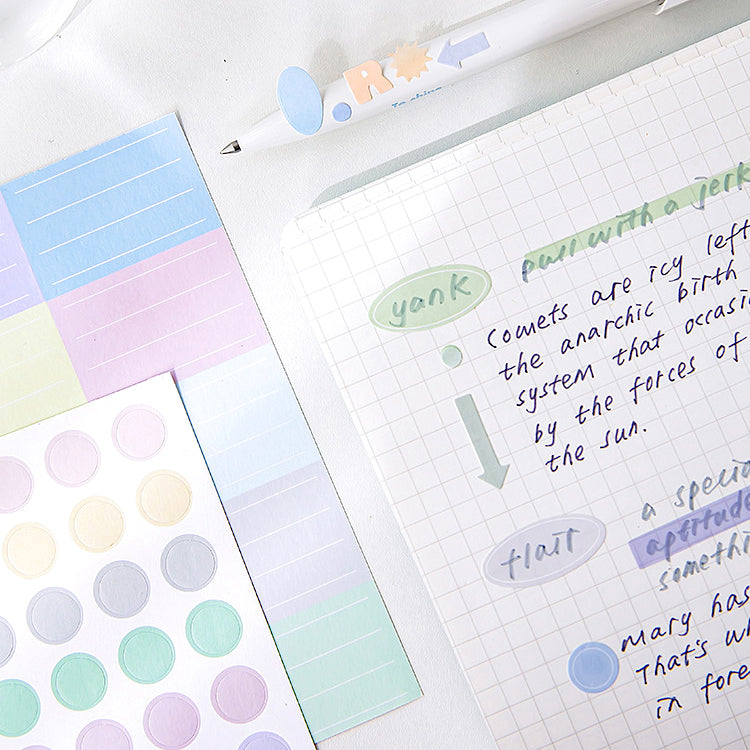 R
pull with a jerk
yank
Comets are icy left
the anarchic birth
system that occasi
by the forces of
the sun.
a specia
aptitude
flair
somethi
Mary has
That's wh
in fore